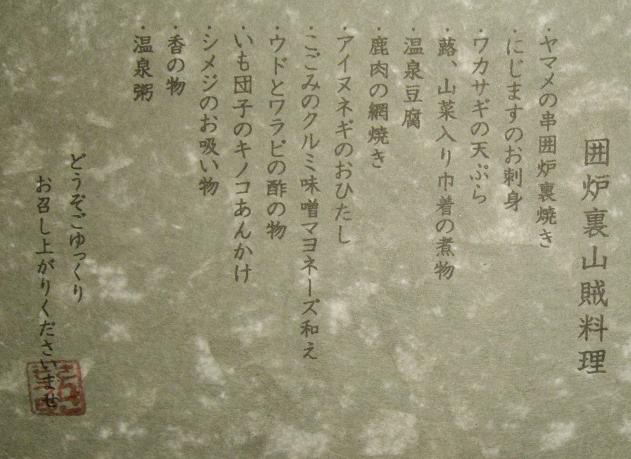 囲炉裏山賊料理
・ヤマメの串囲炉裏焼き
・にじますのお刺身
・ワカサギの天ぷら
・蕗、山菜入り巾着の煮物
・温泉豆腐
・鹿肉の網焼き
・アイヌネギのおひたし
・こごみのクルミ味噌マヨネーズ和え
・ウドとワラビの酢の物
・いも団子のキノコあんかけ
・シメジのお吸い物
・香の物
・温泉粥
どうぞごゆっくり
お召し上がりくださいませ